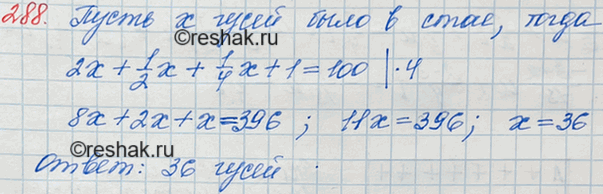 288. Пусть x гусей было в стае, тогда
©reshak.ru
2x + 1/2 x + 1/4 x + 1 = 100 | · 4
8x + 2x + x = 396 ; 11x = 396; x = 36
©reshak.ru
Ответ: 36 гусей